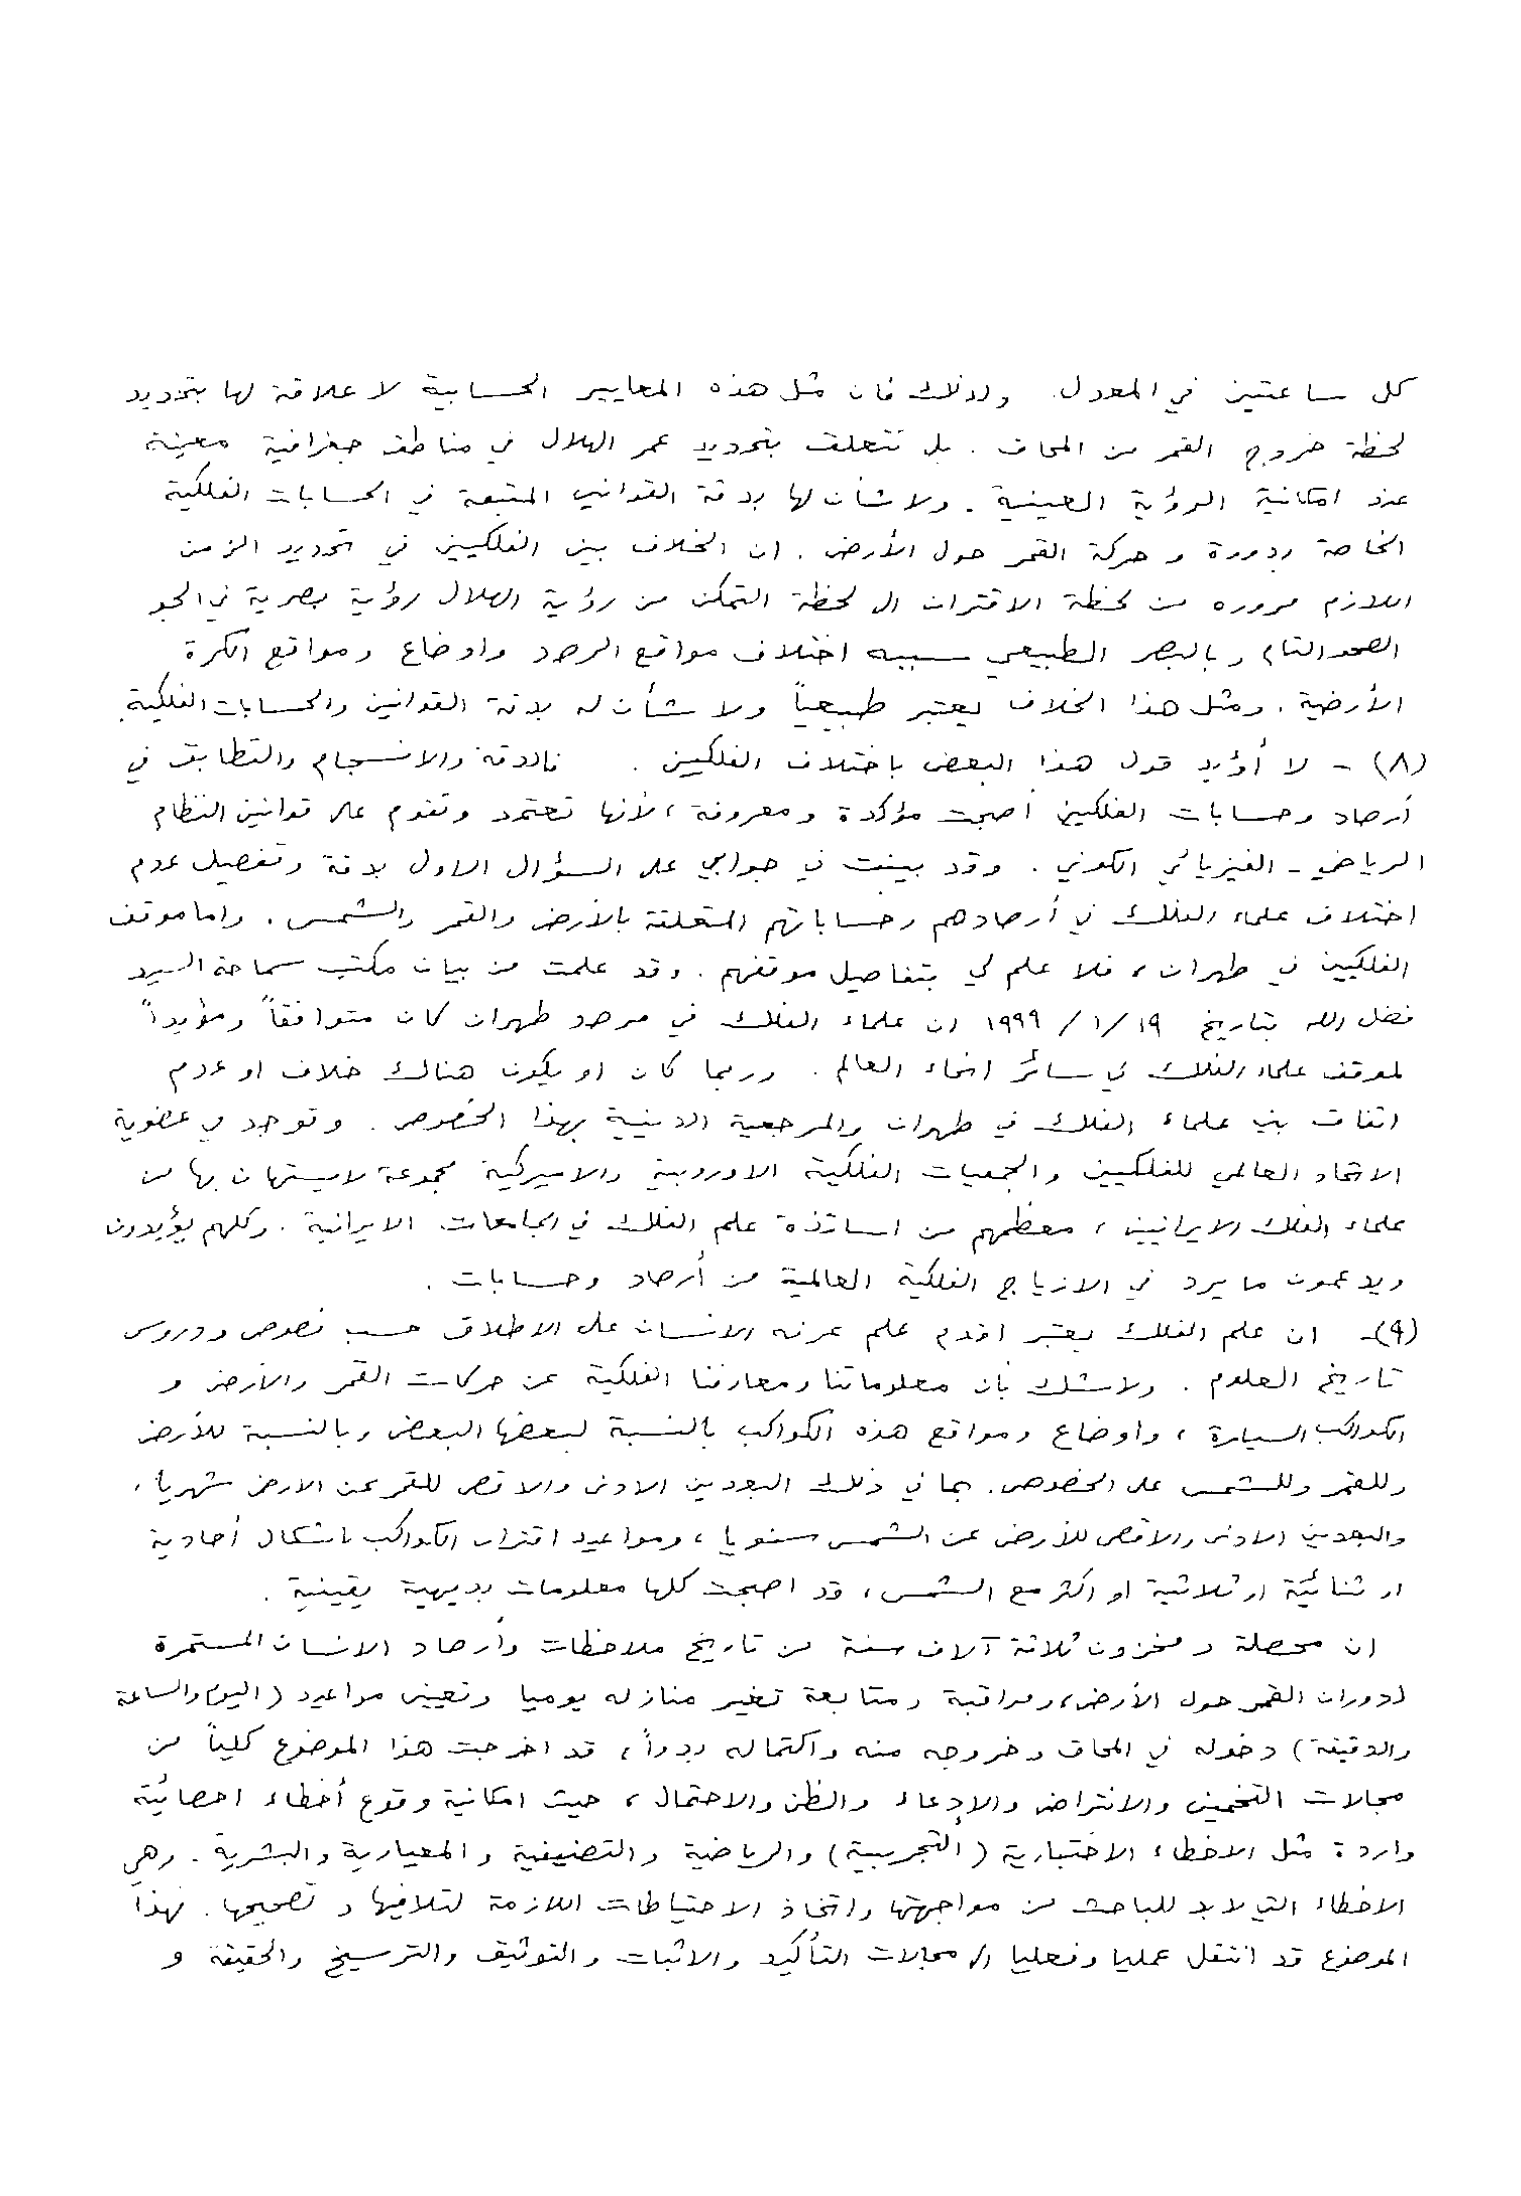 كل ساعتين في المعدل. ولذلك فان مثل هذه المعايير الحسابية لا علاقة لها بتحديد
لحظة خروج القمر من المحاق. بل تتعلق بتحديد عمر الهلال في مناطق جغرافية معينة
عند امكانية الرؤية العينية. ولا شأن لها بدقة القوانين المتبعة في الحسابات الفلكية
الخاصة بدورة وحركة القمر حول الأرض. ان الخلاف بين الفلكيين في تحديد الزمن
اللازم مروره من لحظة الاقتران الى لحظة التمكن من رؤية الهلال رؤية بصرية في الجو
الصحو التام وبالبصر الطبيعي سببه اختلاف مواقع الرصد واوضاع ومواقع الكرة
الأرضية. ومثل هذا الخلاف يعتبر طبيعياً ولا شأن له بدقة القوانين والحسابات الفلكية.
(٨) - لا أؤيد قول هذا البعض باختلاف الفلكيين. فالدقة والانسجام والتطابق في
أرصاد وحسابات الفلكيين أصبحت مؤكدة ومعروفة، لأنها تعتمد وتقوم على قوانين النظام
الرياضي - الفيزيائي الكوني. وقد بينت في جوابي على السؤال الاول بدقة وتفصيل عدم
اختلاف علماء الفلك في أرصادهم وحساباتهم المتعلقة بالأرض والقمر والشمس. واما موقف
الفلكيين في طهران، فلا علم لي بتفاصيل موقفهم. وقد علمت من بيان مكتب سماحة السيد
فضل الله بتاريخ ١٩/١/١٩٩٩ ان علماء الفلك في مرصد طهران كان متوافقاً ومؤيداً
لموقف علماء الفلك في سائر انحاء العالم. وربما كان او يكون هناك خلاف او عدم
اتفاق بين علماء الفلك في طهران والمرجعية الدينية بهذا الخصوص. وتوجد في عضوية
الاتحاد العالمي للفلكيين والجمعيات الفلكية الاوروبية والاميركية مجموعة لا يستهان بها من
علماء الفلك الايرانيين، معظمهم من اساتذة علم الفلك في الجامعات الايرانية. وكلهم يؤيدون
ويدعمون ما يرد في الازياج الفلكية العالمية من أرصاد وحسابات.
(٩)- ان علم الفلك يعتبر اقدم علم عرفه الانسان على الاطلاق حسب نصوص ودروس
تاريخ العلوم. ولا شك بأن معلوماتنا ومعارفنا الفلكية عن حركات القمر والأرض و
الكواكب السيارة، واوضاع ومواقع هذه الكواكب بالنسبة لبعضها البعض وبالنسبة للأرض
وللقمر وللشمس على الخصوص. بما في ذلك البعدين الادنى والاقصى للقمر عن الارض شهرياً،
والبعدين الادنى والاقصى للأرض عن الشمس سنويا، ومواعيد اقتران الكواكب باشكال أحادية
او ثنائية او ثلاثية او اكثر مع الشمس، قد اصبحت كلها معلومات بديهية يقينية.
ان محصلة ومخزون ثلاثة آلاف سنة من تاريخ ملاحظات وأرصاد الانسان المستمرة
لدوران القمر حول الأرض، ومراقبة ومتابعة تغير منازله يوميا وتعيين مواعيد (اليوم والساعة
والدقيقة) دخوله في المحاق وخروجه منه واكتماله بدراً، قد اخرجت هذا الموضوع كلياً من
مجالات التخمين والافتراض والإدعاء والظن والاحتمال، حيث امكانية وقوع أخطاء احصائية
واردة مثل الاخطاء الاختبارية (التجريبية) والرياضية والتصنيفية والمعيارية والبشرية. وهي
الاخطاء التي لابد للباحث من مواجهتها واتخاذ الاحتياطات اللازمة لتلافيها وتصحيحها. فهذا
الموضوع قد انتقل عمليا وفعليا الى مجالات التأكيد والاثبات والتوثيق والترسيخ والحقيقة و